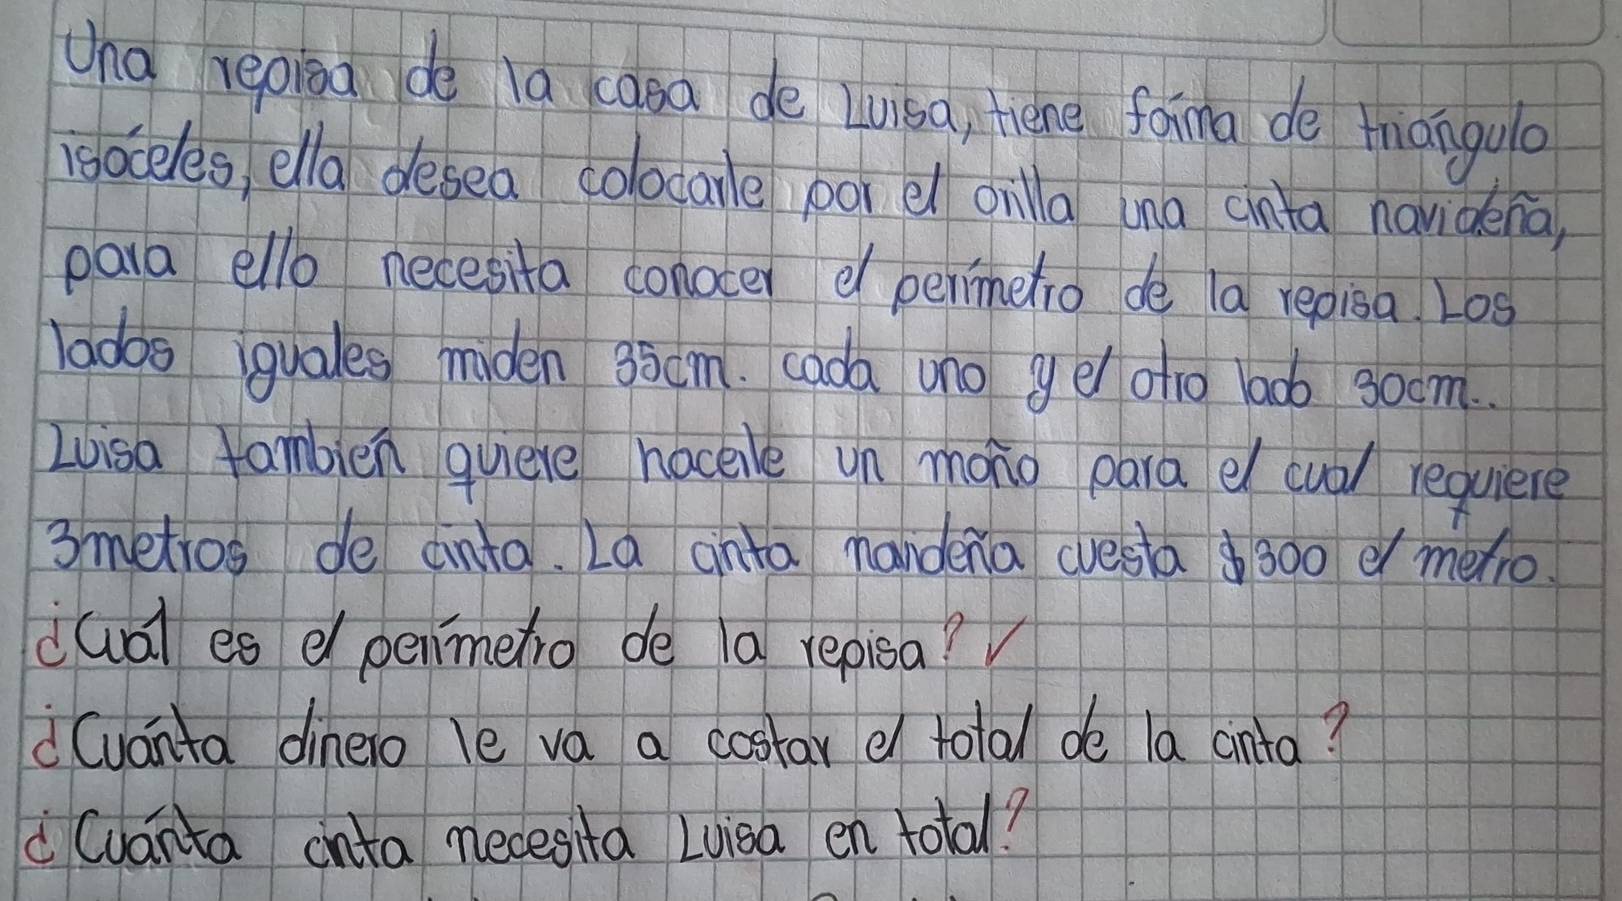 Una repisa de la casa de Luisa, tiene forma de triángulo
isóceles, ella desea colocarle por el orilla una cinta navideña,
para ello necesita conocer el perímetro de la repisa. Los
lados iguales miden 35cm. cada uno y el otro lado 30cm..
Luisa tambien quiere hacerle un moño para el cual requiere
3metros de cinta. La cinta navideña cuesta $300 el metro.
¿Cuál es el perímetro de la repisa? ✓
¿Cuánta dinero le va a costar el total de la cinta?
¿Cuánta cinta necesita Luisa en total?